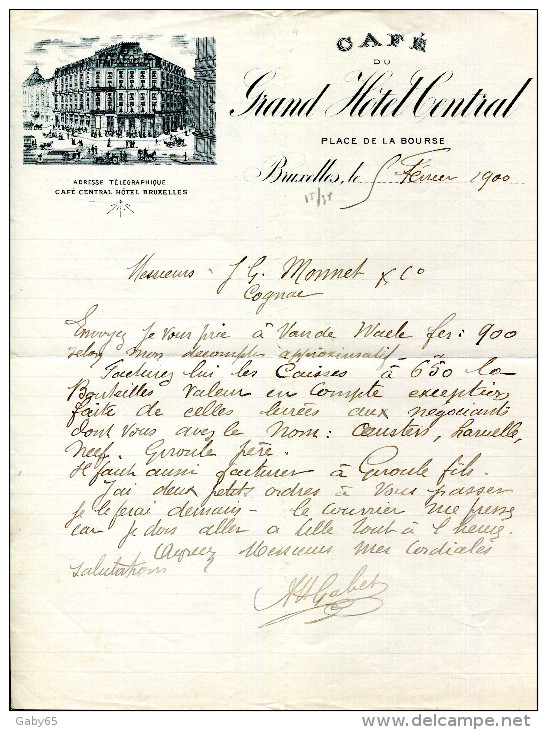 CAFÉ
DU
Grand Hôtel Central
PLACE DE LA BOURSE
ADRESSE TÉLÉGRAPHIQUE
CAFÉ CENTRAL HÔTEL BRUXELLES
Bruxelles, le 5 Février 1900
Messieurs J. G. Monnet & Co
Cognac
Envoyez je vous prie à Van de Waele fcs: 900
selon mon décompte approximatif
Facturez lui les Caisses à 650 la
Bouteilles Valeur en Compte exception
faite de celles livrées aux négociants
dont vous avez le nom:
Neef. Giroule père.
Il faut aussi facturer à Giroule fils.
J'ai deux petits ordres à vous passer
je le ferai demain - le courrier me presse
car je dois aller a Lille tout à l'heure.
Agréez Messieurs mes Cordiales
salutations
Gaby65
www.delcampe.net